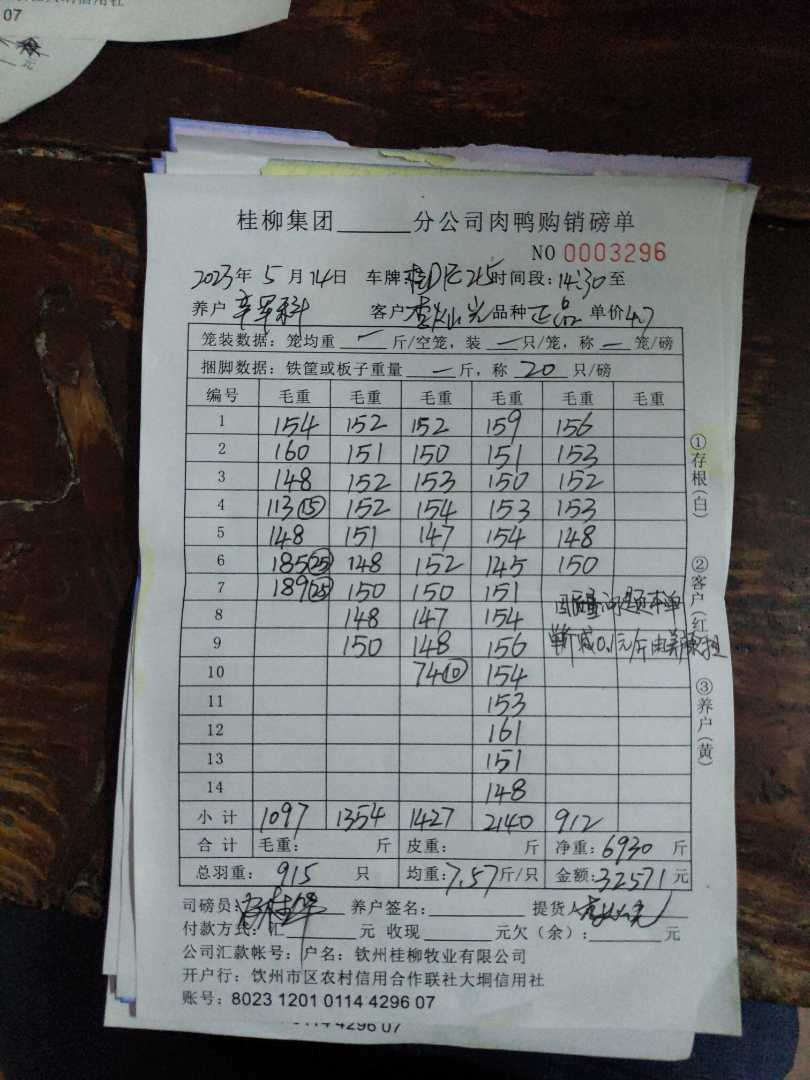 07
元
桂柳集团______分公司肉鸭购销磅单
NO 0003296
2023年 5 月 14日 车牌: 215 时间段: 14:30 至
养户 客户 品种 正品 单价 4.7
笼装数据: 笼均重 一 斤/空笼, 装 一 只/笼, 称 一 笼/磅
捆脚数据: 铁筐或板子重量 一 斤, 称 20 只/磅
编号 毛重 毛重 毛重 毛重 毛重 毛重
1 154 152 152 159 156
2 160 151 150 151 153
3 148 152 153 150 152
4 113 (15) 152 154 153 153
5 148 151 147 154 148
6 185 (25) 148 152 145 150
7 189 (25) 150 150 151
8 148 147 154 因质量问题本单
9 150 148 156 单价减0.1元/斤由养户承担
10 74 (10) 154
11 153
12 161
13 151
14 148
小计 1097 1354 1427 2140 912
合计 毛重: 斤 皮重: 斤 净重: 6930 斤
总羽重: 915 只 均重: 7.57 斤/只 金额: 32571 元
司磅员: 养户签名: 提货人
付款方式: 汇______元 收现______元欠(余):______元
公司汇款帐号: 户名: 钦州桂柳牧业有限公司
开户行: 钦州市区农村信用合作联社大垌信用社
账号: 8023 1201 0114 4296 07
0114 4296 07
①存根(白)
②客户(红)
③养户(黄)